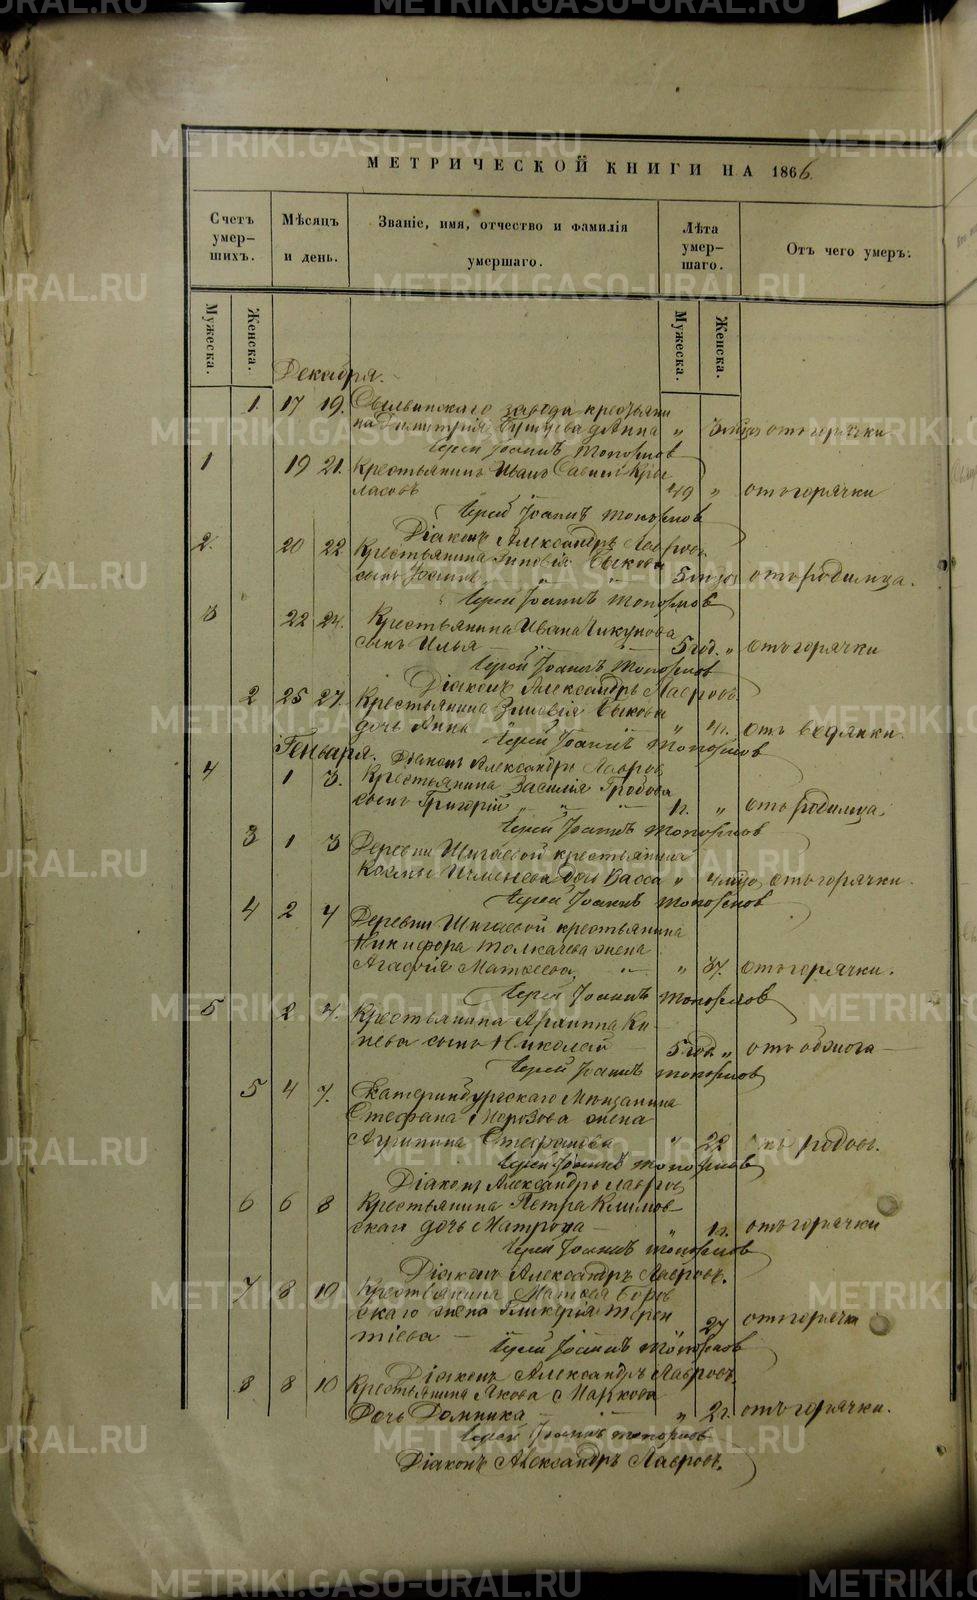 METRIKI.GASO-URAL.RU
МЕТРИЧЕСКОЙ КНИГИ НА 1866.
Счетъ умер-шихъ.
Мѣсяцъ и день.
Званіе, имя, отчество и фамилія умершаго.
Лѣта умер-шаго.
Отъ чего умеръ:
Мужеска.
Женска.
Мужеска.
Женска.
Декабря.
1. 17 19. завода крестьяни
на Димитрія дочь Анна „ отъ горячки
Іерей Іоаннъ Топорковъ
1 19 21. Крестьянинъ Иванъ
49 „ отъ горячки
Іерей Іоаннъ Топорковъ
Діаконъ Александръ Лавровъ.
2. 20 22 Крестьянина Зиновія Быкова
сынъ „ „ отъ родимца.
Іерей Іоаннъ Топорковъ
3 22 24. Крестьянина Ивана Чикунова
сынъ Илья 5 год. „ отъ горячки
Іерей Іоаннъ Топорковъ
Діаконъ Александръ Лавровъ.
2 25 27. Крестьянина Зиновія Быкова
дочь Анна „ 4 г. отъ водянки.
Іерей Іоаннъ Топорковъ
Генваря. Діаконъ Александръ Лавровъ
4 1 3. Крестьянина Василія
сынъ Григорій „ „ „ 1 г. „ отъ родимца.
Іерей Іоаннъ Топорковъ
3 1 3 Деревни Шигаевой крестьянина
Козмы дочь Васса „ отъ горячки.
Іерей Іоаннъ Топорковъ
4 2 4 Деревни Шигаевой крестьянина
Никифора Толкачева жена
Агафія Матвеева „ „ 37. отъ горячки.
Іерей Іоаннъ Топорковъ
5 2 4. Крестьянина Архиппа
сынъ Николай 5 год. „ отъ обжога
Іерей Іоаннъ Топорковъ
5 4 7. Екатеринбургскаго Мещанина
Стефана Морозова жена
Стефанова „ 22 родовъ.
Іерей Іоаннъ Топорковъ
Діаконъ Александръ Лавровъ
6 6 8 Крестьянина Петра Климов
скаго дочь Матрона „ 1 г. отъ горячки
Іерей Іоаннъ Топорковъ
Діаконъ Александръ Лавровъ.
7 8 10 Крестьянина
скаго жена Гликерія Терен
тіева 27 отъ горячки
Іерей Іоаннъ Топорковъ
Діаконъ Александръ Лавровъ.
8 8 10 Крестьянина Якова Маркова
Дочь Домника „ 2 г. отъ горячки.
Іерей Іоаннъ Топорковъ
Діаконъ Александръ Лавровъ.